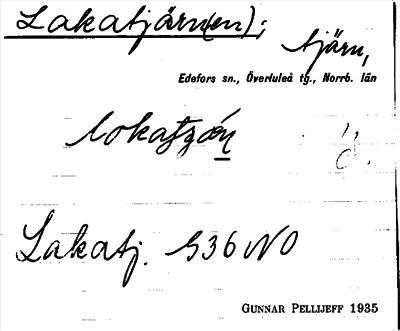 Lakatjärn(en);
tjärn,
Edefors sn., Överluleå tg., Norrb. län
Lakatj. 936 NO
GUNNAR PELLIJEFF 1935